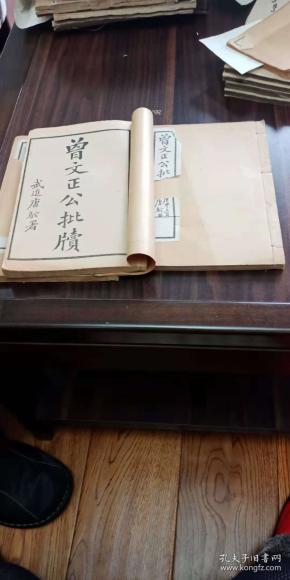 曾文正公批牘
武進唐駝署
曾文正公批
孔夫子旧书网
www.kongfz.com